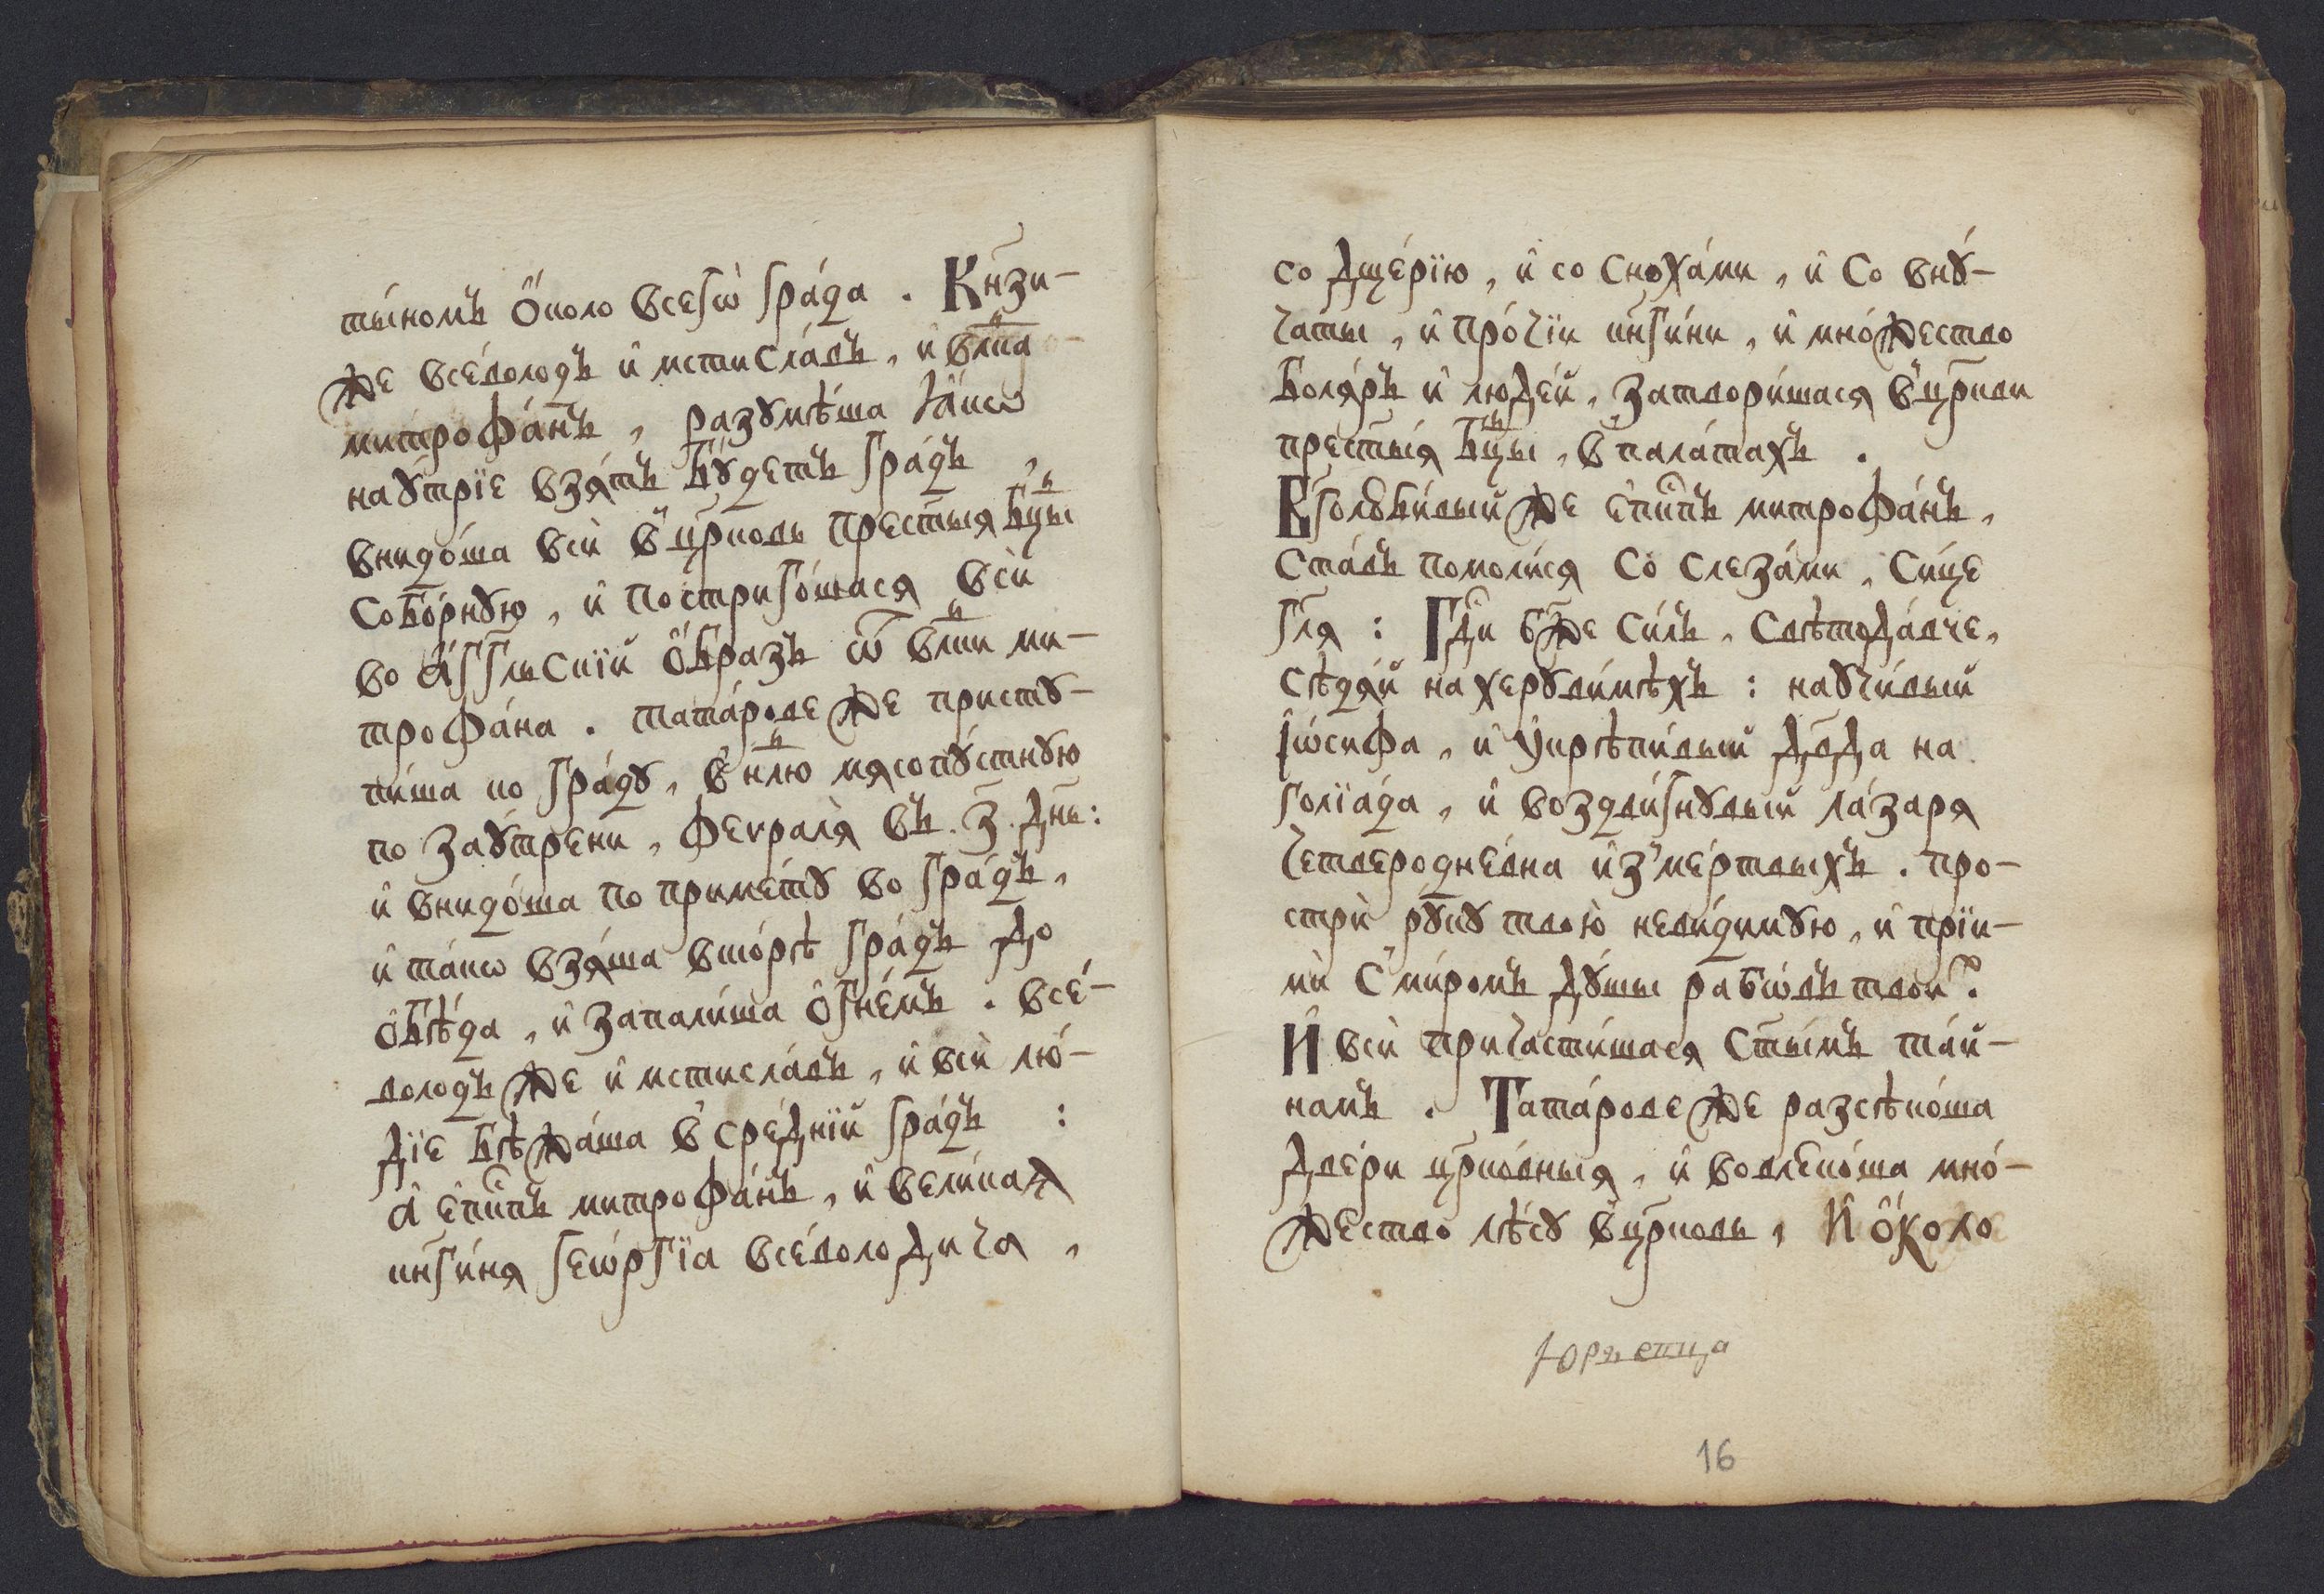 ты́номъ ѻ҆́коло всегѡ̀ гра́да. Кн҃зи-
же всѐволодъ и҆ мстисла́въ, и҆ вл҃дка
митрофа́нъ, разꙋмѣ́ша ꙗ҆́кѡ
наꙋ́трїе взя́тъ бꙋ́детъ гра́дъ,
внидо́ша всѝ в̾ цр҃ковь прест҃ыя бц҃ы
собо́рнꙋю, и҆ постриго́шася всѝ
во а҆́гг҃льскїй ѻ҆́бразъ ѿ вл҃ки ми-
трофа́на. тата́рове же пристꙋ-
пи́ша ко гра́дꙋ, в̾ нл҃ю мясопꙋ́стнꙋю
по заꙋ́трени, феврала̀ въ .з҃. дн҃ь:
и҆ внидо́ша по приме́тꙋ во гра́дъ,
и҆ та́кѡ взя́ша вско́рѣ гра́дъ до
ѻ҆бѣ́да, и҆ запали́ша ѻ҆гне́мъ. все́-
володъ же и҆ мстисла́въ, и҆ всѝ лю́-
дїе бѣжа́ша в̾ сре́днїй гра́дъ:
а҆ є҆пⷭ҇кпъ митрофа́нъ, и҆ вели́кая
кнги́ня геѡ́ргїа все́володича,
со дще́рїю, и҆ со сноха́ми, и҆ со внꙋ́-
чаты, и҆ про́чїи кн҃ги́ни, и҆ мно́жество
боля́ръ и҆ люде́й, затвори́шася в̾ цр҃кви
прест҃ы́я бц҃ы, в̾ пала́тахъ.
Бг҃олюби́вый же є҆пⷭ҇кпъ митрофа́нъ,
ста́въ помоли́ся со̀ слеза́ми, си́це
гл҃я: Гдⷭ҇и бж҃е си́лъ, свѣтода́вче,
сѣдя́й на херꙋви́мѣхъ: наꙋчи́вый
і҆ѡ́сифа, и҆ ᲂу҆крѣпи́вый дв҃да на
голїа́да, и҆ воздви́гнꙋвый ла́заря
четверодне́вна и҆з̾ ме́ртвыхъ. про-
стрѝ рꙋ́кꙋ твою̀ неви́димꙋю, и҆ прїи-
мѝ с̾ ми́ромъ дꙋ́шы рабѡ́въ твои́ⷯ.
И҆ всѝ причасти́шася ст҃ы́мъ та́й-
намъ. Тата́рове же разсѣко́ша
две́ри цр҃ко́вныя, и҆ вовлеко́ша мно́-
жество лѣ́сꙋ в̾ цр҃ковь, и҆ ѻ҆́коло
16